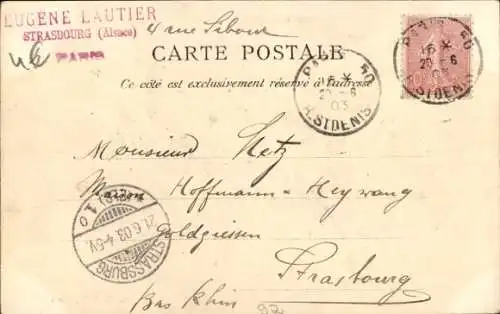 EUGÈNE LAUTIER
STRASBOURG (Alsace)
PARIS
4 rue Sibour
CARTE POSTALE
Ce côté est exclusivement réservé à l'adresse
PARIS 50
15 *
20 - 6
03
R. ST DENIS
PARIS 50
15 *
20 - 6
03
R. ST DENIS
Monsieur Metz
Maison Hoffmann & Heywang
Goldgiessen
Strasbourg
Bas Rhin
STRASSBURG
21.6.03.4-5V.
(ELS.) 10